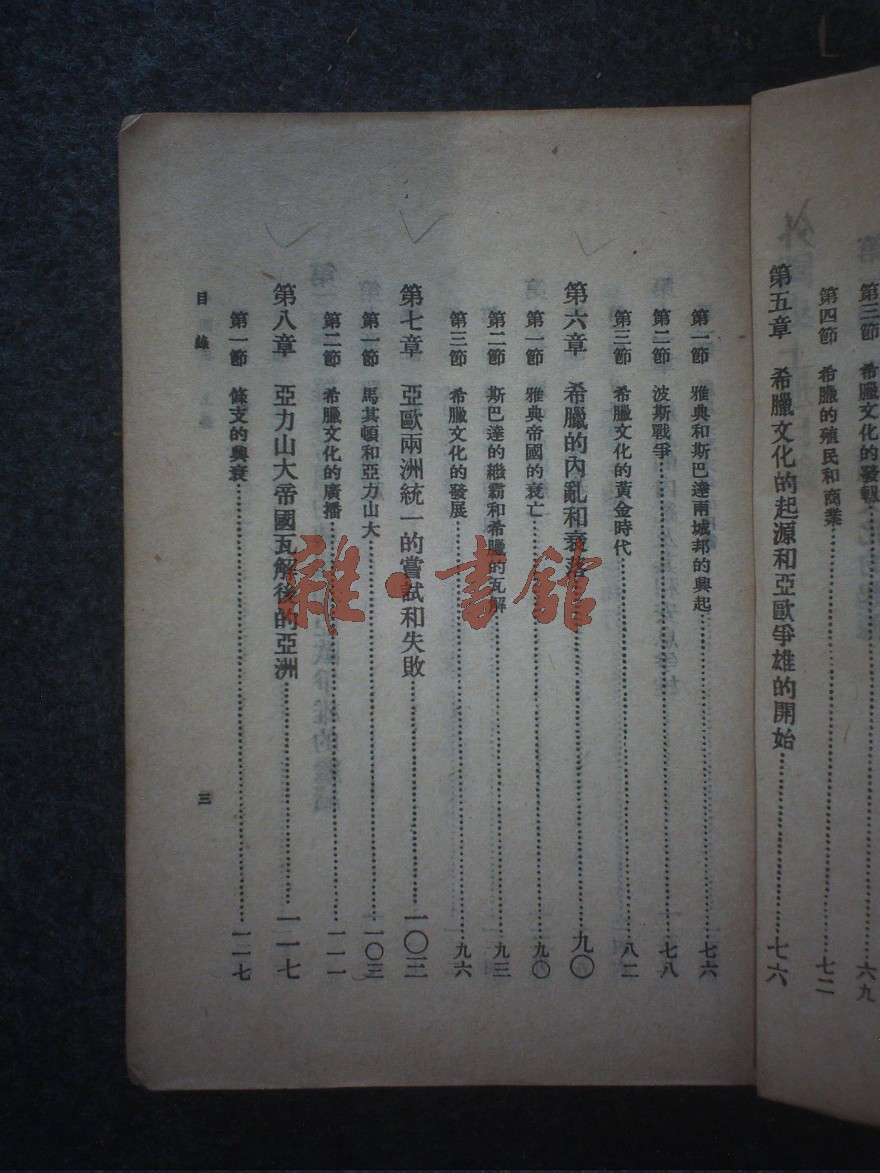 第三節 希臘文化的發軔 六九
第四節 希臘的殖民和商業 七二
第五章 希臘文化的起源和亞歐爭雄的開始 七六
第一節 雅典和斯巴達兩城邦的興起 七六
第二節 波斯戰爭 七八
第三節 希臘文化的黃金時代 八二
第六章 希臘的內亂和衰落 九〇
第一節 雅典帝國的衰亡 九〇
第二節 斯巴達的繼霸和希臘的瓦解 九三
第三節 希臘文化的發展 九六
第七章 亞歐兩洲統一的嘗試和失敗 一〇三
第一節 馬其頓和亞力山大 一〇三
第二節 希臘文化的廣播 一一一
第八章 亞力山大帝國瓦解後的亞洲 一一七
第一節 條支的興衰 一一七
目錄
三
雜·書館